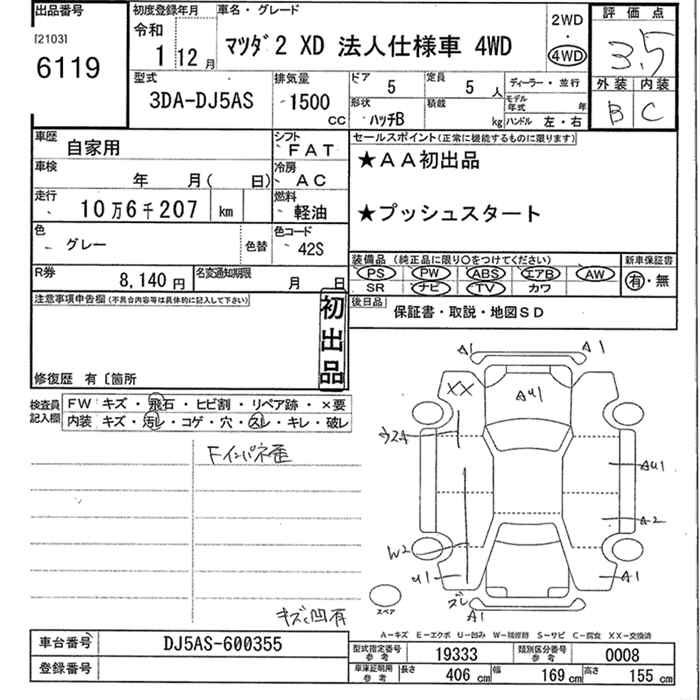 出品番号
[2103]
6119
初度登録年月
令和
1 12 月
車名・グレード
マツダ2 XD 法人仕様車 4WD
2WD
・
4WD
評価点
3.5
外装 内装
B C
型式
3DA-DJ5AS
排気量
1500 CC
ドア 5
定員 5 人
形状 ハッチB
積載 kg
ディーラー・並行
モデル年式 年
ハンドル 左・右
車歴 自家用
シフト FAT
車検 年 月( 日)
冷房 AC
走行 10万6千207 km
燃料 軽油
色 グレー 色替
色コード 42S
R券 8,140 円
名変通知期限 月 日
セールスポイント(正常に機能するものに限ります)
★AA初出品
★プッシュスタート
装備品 (純正品に限り〇をつけてください)
PS PW ABS エアB AW
SR ナビ TV カワ
新車保証書
有・無
後日品 保証書・取説・地図SD
注意事項申告欄(不具合内容等は具体的に記入して下さい)
初出品
修復歴 有 [箇所
検査員記入欄
FW キズ・飛石・ヒビ割・リペア跡・×要
内装 キズ・汚レ・コゲ・穴・スレ・キレ・破レ
Fインパネ歪
キズ凹有
A1 A1
XX AU1
AU1
A2
W2
U1 A1
ズレ
A1
スペア
A-キズ E-エクボ U-凹み W-補修跡 S-サビ C-腐食 XX-交換済
車台番号 DJ5AS-600355
登録番号
型式指定番号 参考 19333
類別区分番号 参考 0008
車庫証明用 参考 長さ 406 cm 幅 169 cm 高さ 155 cm